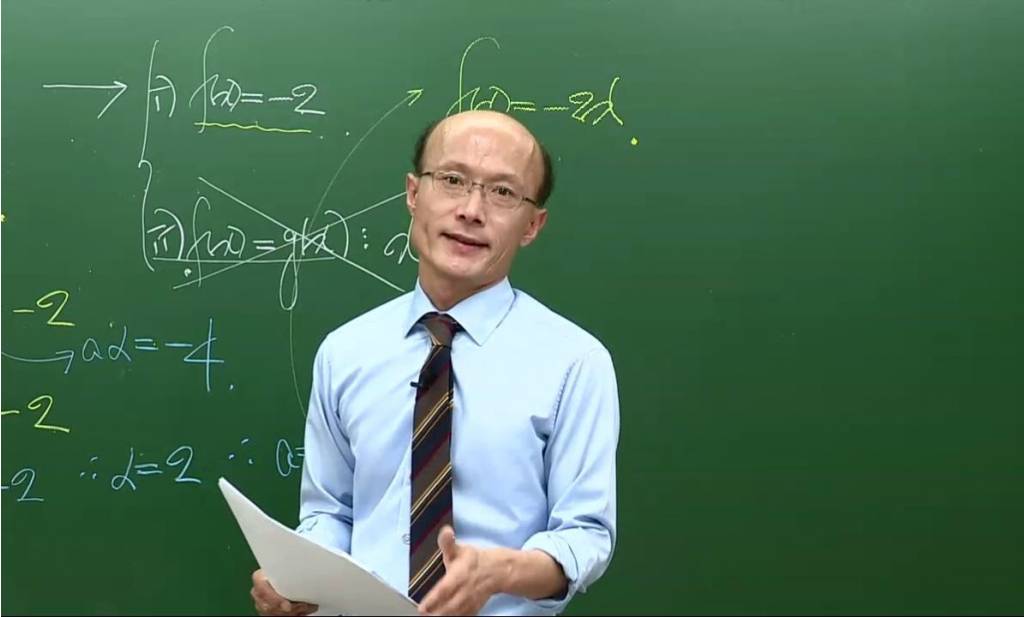 → i) f(x) = -2
f(x) = -2α.
ii) f(x) = g(x) ⋮ α
-2
→ aα = -4.
-2
-2 ∴ α = 2 ∴ a=